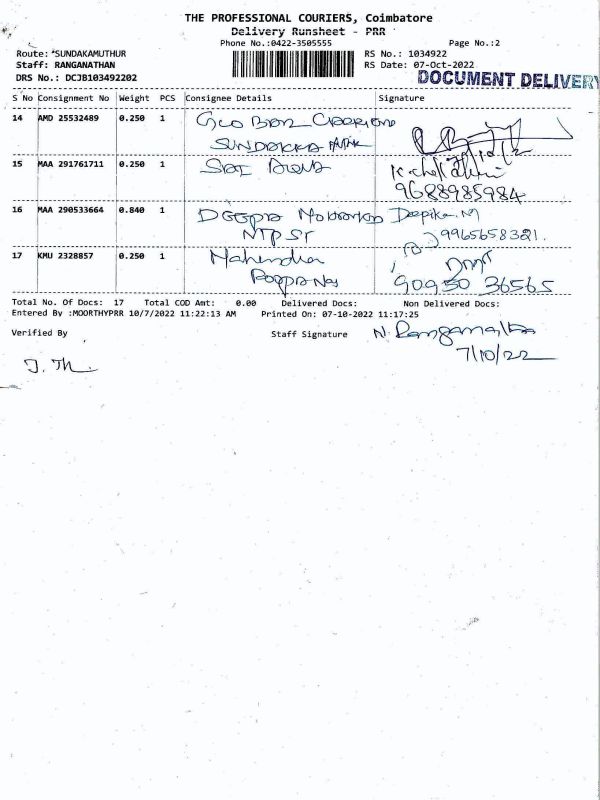 THE PROFESSIONAL COURIERS, Coimbatore
Delivery Runsheet - PRR
Phone No.:0422-3505555
Page No.:2
Route: *SUNDAKAMUTHUR
RS No.: 1034922
Staff: RANGANATHAN
RS Date: 07-Oct-2022
DRS No.: DCJB103492202
DOCUMENT DELIVERY
S No Consignment No Weight PCS Consignee Details Signature
14 AMD 25532489 0.250 1
15 MAA 291761711 0.250 1 SRI
9688985984
16 MAA 290533664 0.840 1 DEEPA Deepika.M
NTP ST 9965658321.
17 KMU 2328857 0.250 1 Mahendra
90950 36565
Total No. Of Docs: 17 Total COD Amt: 0.00 Delivered Docs: Non Delivered Docs:
Entered By :MOORTHYPRR 10/7/2022 11:22:13 AM Printed On: 07-10-2022 11:17:25
Verified By Staff Signature N. Ranganathan
7/10/22